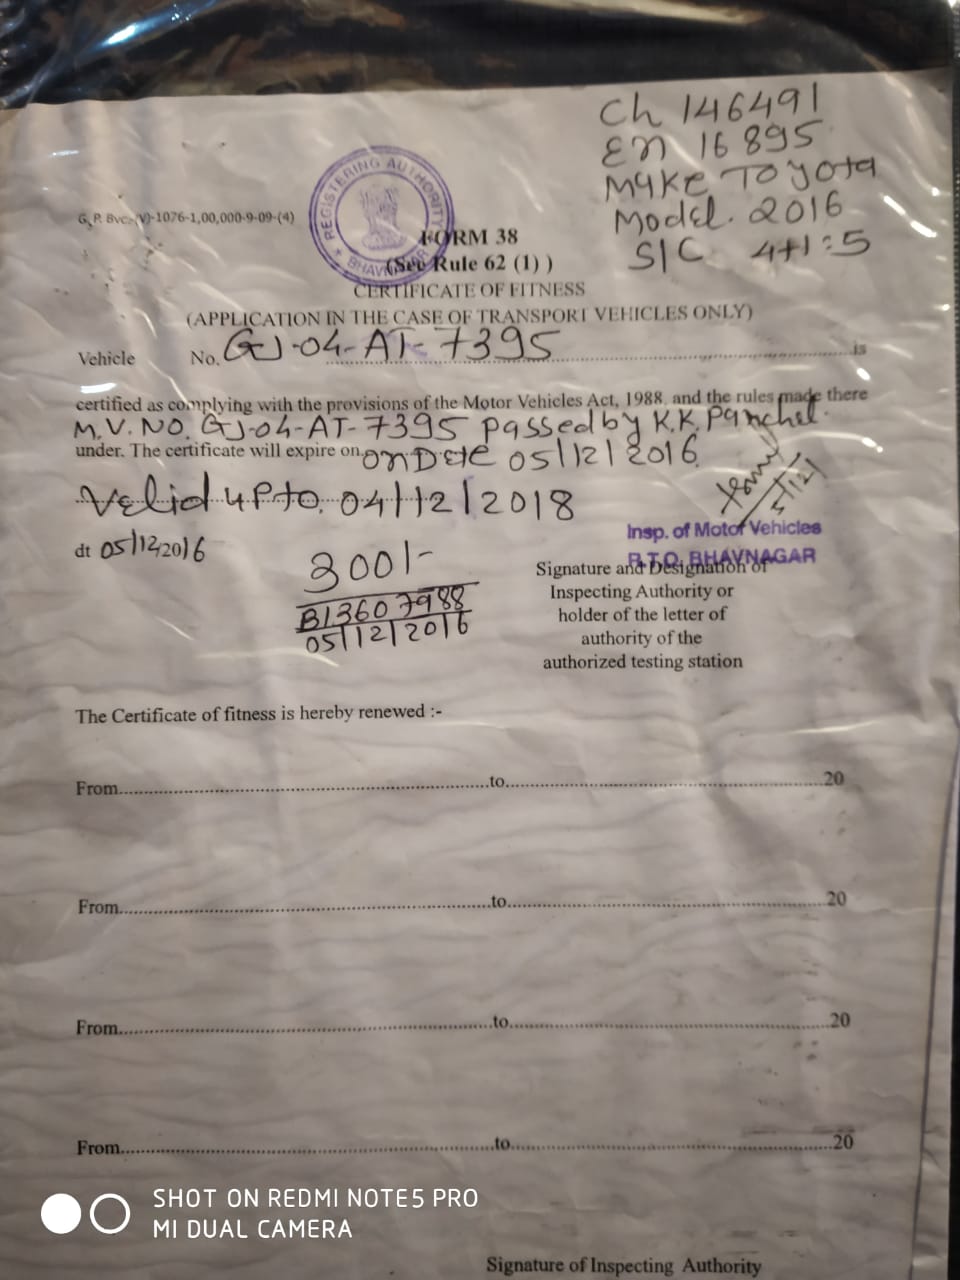 Ch 146491
En 16895
Make Toyota
Model. 2016
S/C 4+1=5
REGISTERING AUTHORITY
BHAVNAGAR
G. P. Bvc.-(V)-1076-1,00,000-9-09-(4)
FORM 38
(See Rule 62 (1) )
CERTIFICATE OF FITNESS
(APPLICATION IN THE CASE OF TRANSPORT VEHICLES ONLY)
Vehicle No. GJ-04-AT-7395 is
certified as complying with the provisions of the Motor Vehicles Act, 1988, and the rules made there
M.V. NO. GJ-04-AT-7395 Passed by K.K. Panchal.
under. The certificate will expire on on Date 05/12/2016
Valid up to. 04/12/2018
dt 05/12/2016
300/-
B13607988
05/12/2016
Insp. of Motor Vehicles
R.T.O. BHAVNAGAR
Signature and Designation of
Inspecting Authority or
holder of the letter of
authority of the
authorized testing station
The Certificate of fitness is hereby renewed :-
From to 20
From to 20
From to 20
From to 20
SHOT ON REDMI NOTE5 PRO
MI DUAL CAMERA
Signature of Inspecting Authority